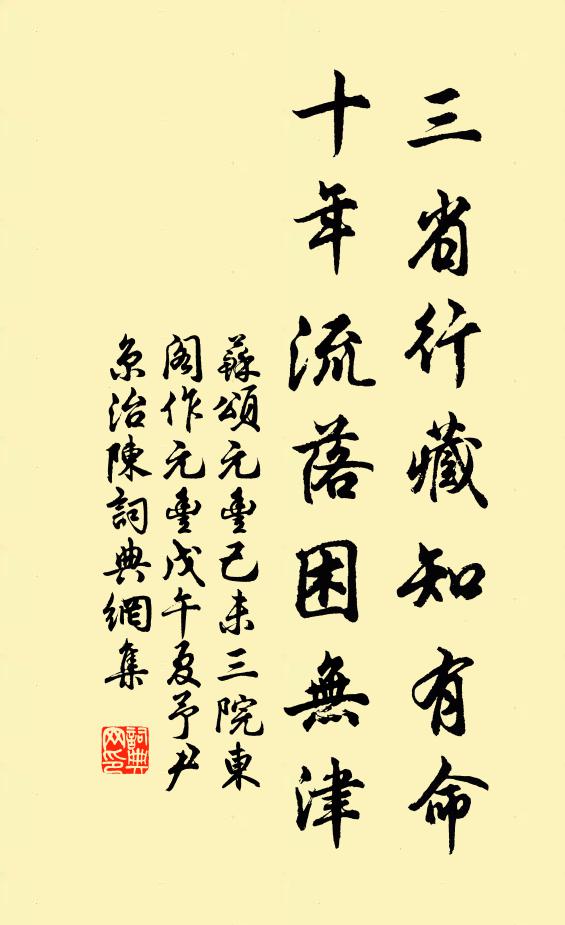 三省行藏知有命
十年流落困無津
蘇頌元豊己未三院東
閣作元豊戊午夏予尹
京治陳詞典網集
詞典
网印